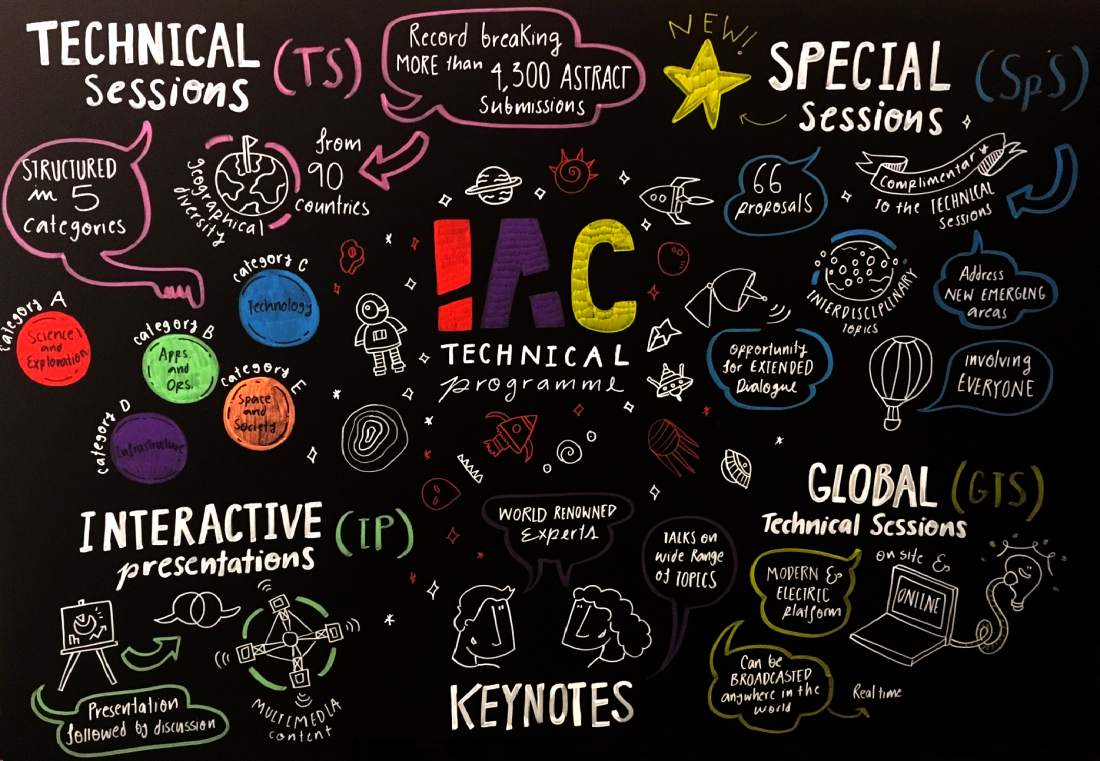 TECHNICAL
Sessions
(TS)
Record breaking
MORE than
4,300 ASTRACT
Submissions
NEW!
SPECIAL
Sessions
(SpS)
STRUCTURED
in 5
categories
geographical
diversity
from
90
countries
66
proposals
Complimentary
to the TECHNICAL
Sessions
category A
Science
and
Exploration
category B
Apps.
and
Ops.
category C
Technology
category D
Infrastructure
category E
Space
and
Society
IAC
TECHNICAL
programme
INTERDISCIPLINARY
TOPICS
Address
NEW EMERGING
areas
Opportunity
for EXTENDED
Dialogue
Involving
EVERYONE
INTERACTIVE
presentations
(IP)
Presentation
followed by discussion
MULTIMEDIA
content
WORLD RENOWNED
Experts
TALKS on
wide Range
of TOPICS
KEYNOTES
GLOBAL
(GTS)
Technical Sessions
on site &
ONLINE
MODERN &
ELECTRIC
platform
Can be
BROADCASTED
anywhere in the
world
Real time